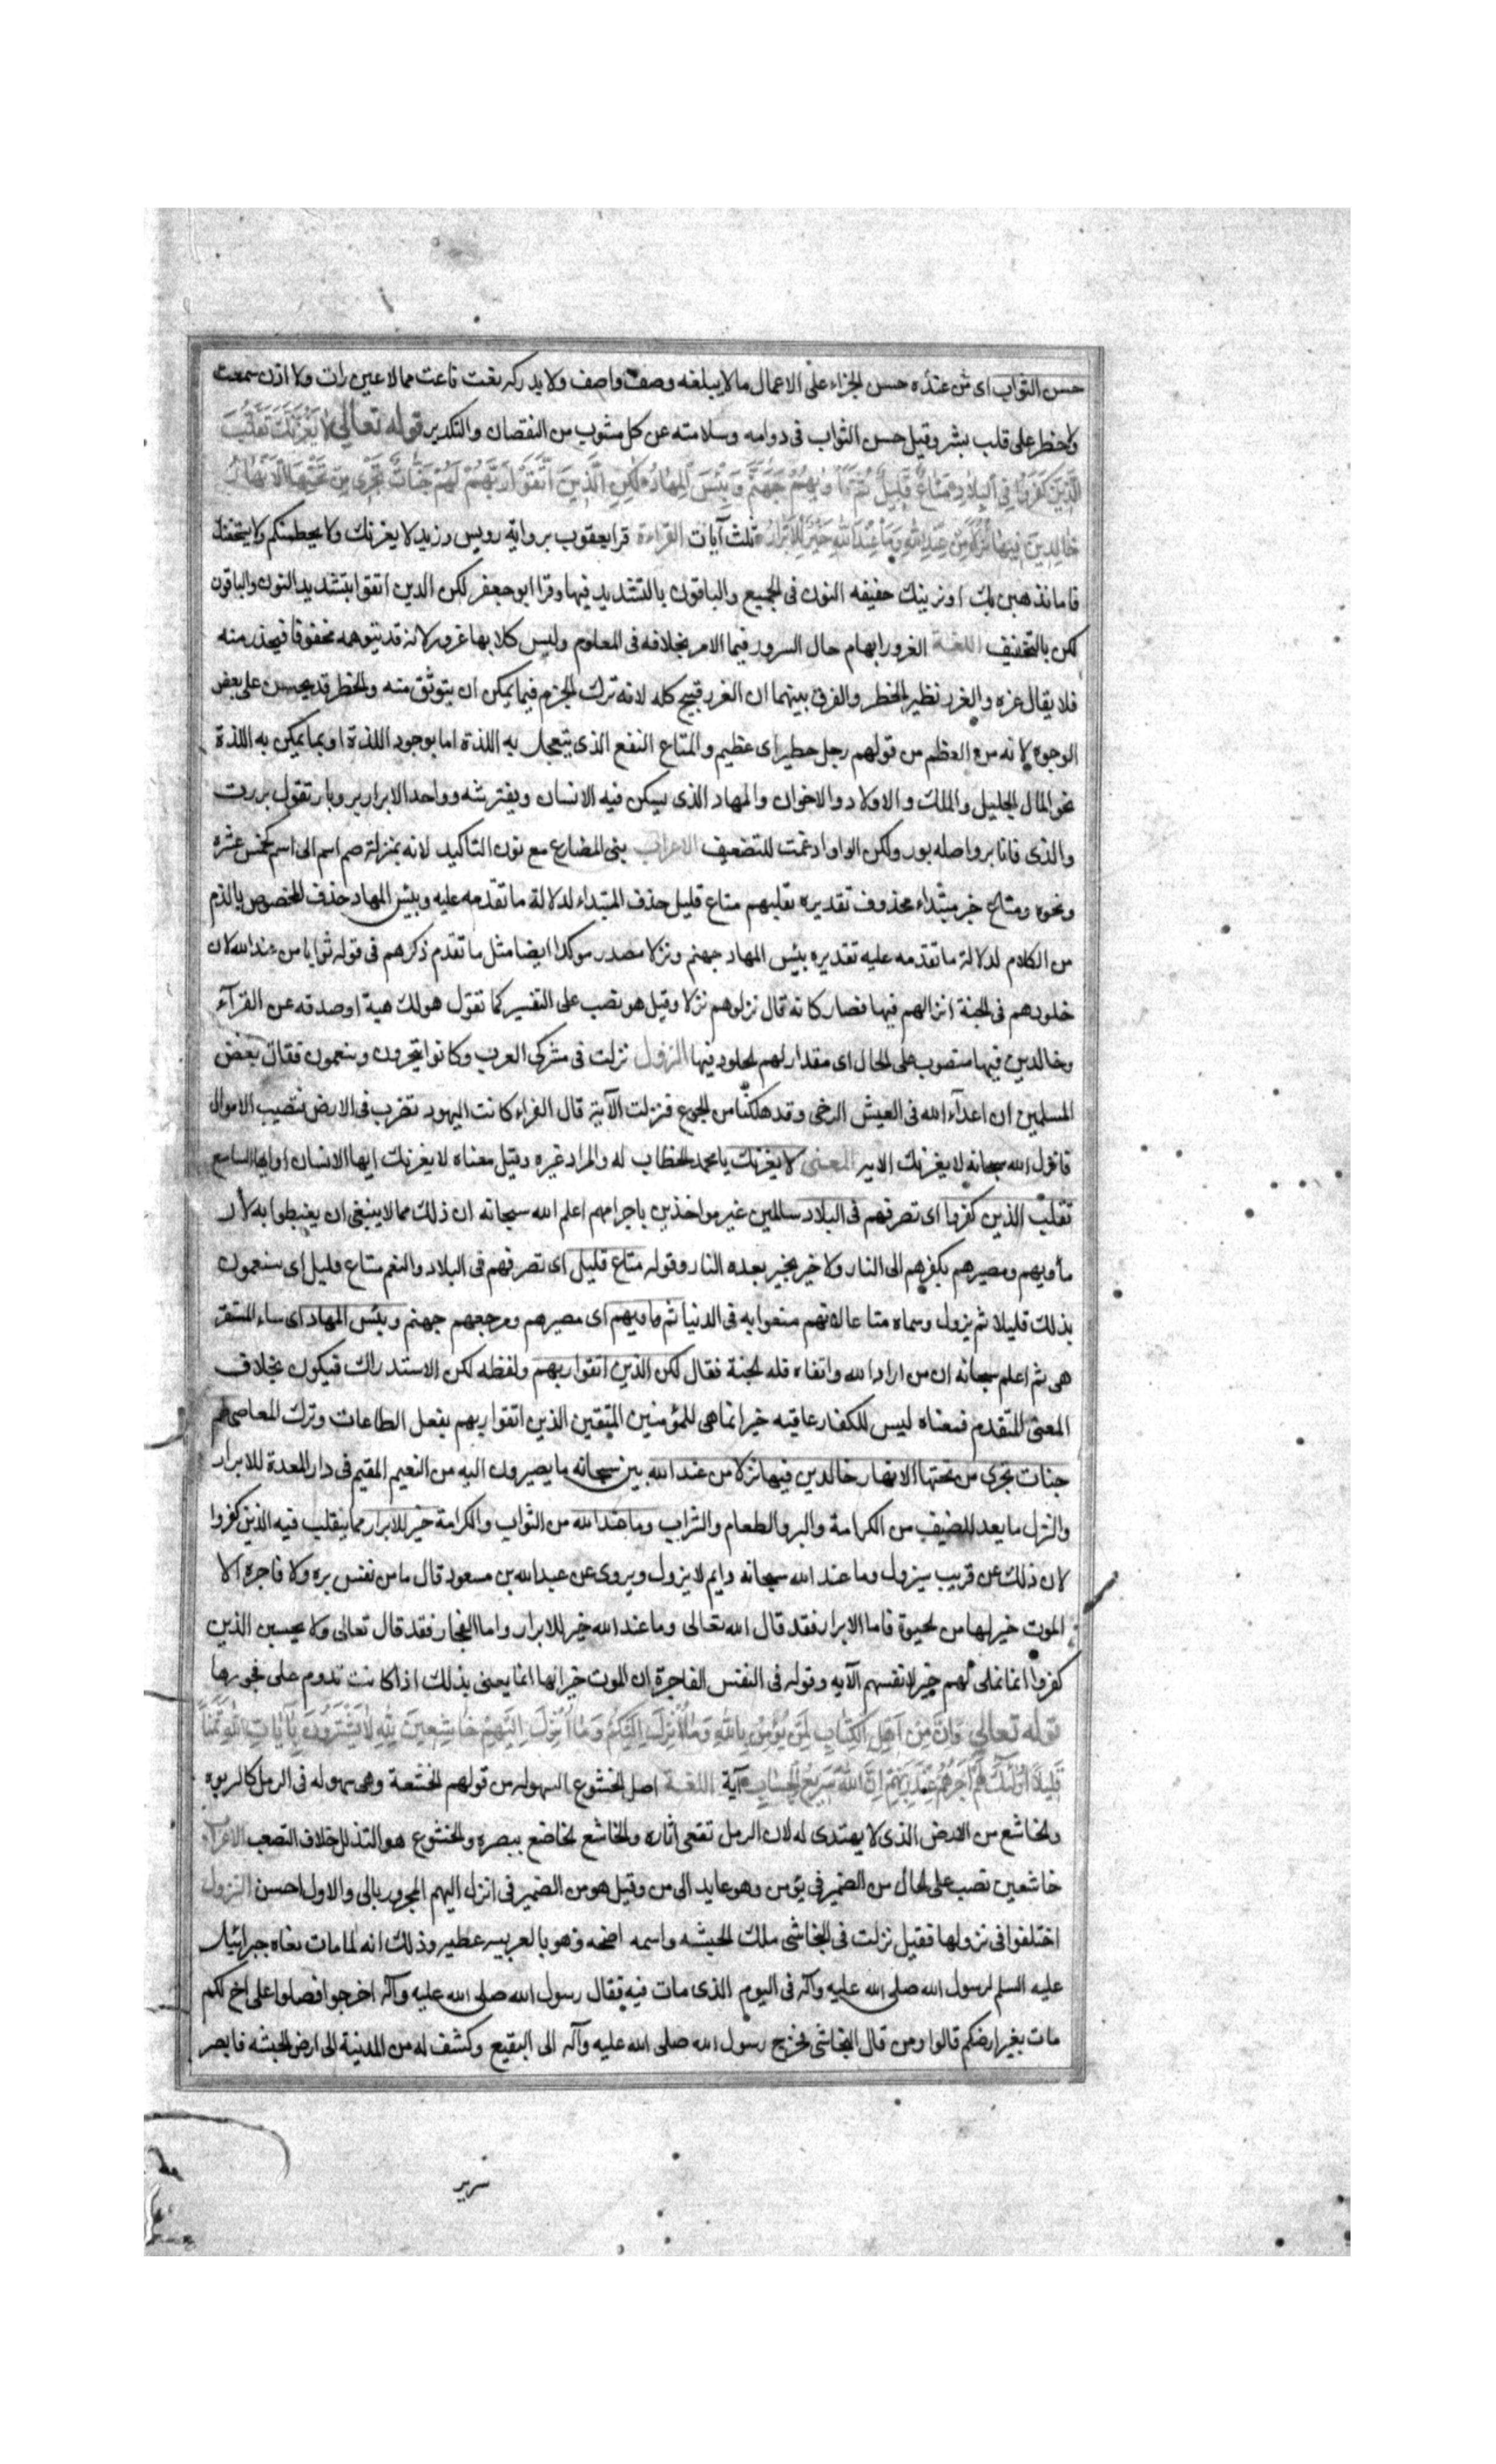 حسن الثواب اى من عنده حسن الجزاء على الاعمال ما لا يبلغه وصف واصف ولا يدركه نعت ناعت مما لا عين رات ولا اذن سمعت
ولا خطر على قلب بشر وقيل حسن الثواب فى دوامه وسلامته عن كل مشوب من النقصان والتكدير قوله تعالى لَا يَغُرَّنَّكَ تَقَلُّبُ
الَّذِينَ كَفَرُوا فِي الْبِلَادِ مَتَاعٌ قَلِيلٌ ثُمَّ مَأْوٰيهُمْ جَهَنَّمُ وَبِئْسَ الْمِهَادُ لٰكِنِ الَّذِينَ اتَّقَوْا رَبَّهُمْ لَهُمْ جَنَّاتٌ تَجْرِي مِنْ تَحْتِهَا الْاَنْهَارُ
خَالِدِينَ فِيهَا نُزُلًا مِنْ عِنْدِ اللهِ وَمَا عِنْدَ اللهِ خَيْرٌ لِلْاَبْرَارِ ثلث آيات القراءة قرا يعقوب برواية رويس وزيد لا يغرنك ولا يحطمنكم ولا يستخفنك
فاما نذهبن بك او نرينك خفيفه النون فى الجميع والباقون بالتشديد فيها وقرا ابو جعفر لكن الذين اتقوا بتشديد النون والباقون
لكن بالتخفيف اللغة الغرور ايهام حال السرور فيما الامر بخلافه فى المعلوم وليس كلا بها غرور لانه قد يتوهمه مخوفا فيحذر منه
فلا يقال غره والغرر نظير الخطر والفرق بينهما ان الغرر قبيح كله لانه ترك الجزم فيما يمكن ان يتوثق منه والخطر قد يحسن على بعض
الوجوه لانه من العظم من قولهم رجل خطير اى عظيم والمتاع النفع الذى يتعجل به اللذة اما بوجود اللذة او بما يمكن به اللذة
نحو المال الجليل والملك والاولاد والاخوان والمهاد الذى يسكن فيه الانسان ويفترشه وواحد الابرار بر وبار تقول بررت
والذى فانا بر واصله برر ولكن الواو ادغمت للتضعيف الاعراب بنى المضارع مع نون التاكيد لانه بمنزلة ضم اسم الى اسم كخمس عشرة
ونحوه ومتاع خبر مبتداء محذوف تقديره تقلبهم متاع قليل حذف المبتداء لدلالة ما تقدمه عليه وبئس المهاد حذف المخصوص بالذم
من الكلام لدلالة ما تقدمه عليه تقديره بئس المهاد جهنم ونزلا مصدر موكد ايضا مثل ما تقدم ذكرهم فى قوله ثوابا من عند الله لان
خلودهم فى الجنة انزالهم فيها فصار كانه قال نزلوهم نزلا وقيل هو نصب على التفسير كما تقول هو لك هبة او صدقه عن الفرآء
وخالدين فيها منصوب على الحال اى مقدار لهم الخلود فيها النزول نزلت فى مشركى العرب وكانوا يتجرون ويتنعمون فقال بعض
المسلمين ان اعدآء الله فى العيش الرخى وقد هلكنا من الجوع فنزلت الآية قال الفراء كانت اليهود تضرب فى الارض فتصيب الاموال
فانزل الله سبحانه لا يغرنك الاية المعنى لا يغرنك يا محمد الخطاب له والمراد غيره وقيل معناه لا يغرنك ايها الانسان او ايها السامع
تقلب الذين كفروا اى تصرفهم فى البلاد سالمين غير مواخذين باجرامهم اعلم الله سبحانه ان ذلك مما لا ينبغى ان يغبطوا به لان
مأويهم ومصيرهم بكفرهم الى النار ولا خير بخير بعده النار وقوله متاع قليل اى تصرفهم فى البلاد والنعم متاع قليل اى يتنعمون
بذلك قليلا ثم يزول وسماه متاعا لانهم متعوا به فى الدنيا ثم ماويهم اى مصيرهم ومرجعهم جهنم وبئس المهاد اى ساء المستقر
هى ثم اعلم سبحانه ان من اراد الله واتقاه فله الجنة فقال لكن الذين اتقوا ربهم ولفظه لكن الاستدراك فيكون بخلاف
المعنى المتقدم فمعناه ليس للكفار عاقبه خير انما هى للمؤمنين المتقين الذين اتقوا ربهم بفعل الطاعات وترك المعاصى لهم
جنات تجرى من تحتها الانهار خالدين فيها نزلا من عند الله بين سبحانه ما يصيرون اليه من النعيم المقيم فى دار المعدة للابرار
والنزل ما يعد للضيف من الكرامة والبر والطعام والشراب وما عند الله من الثواب والكرامة خير للابرار مما ينقلب فيه الذين كفروا
لان ذلك عن قريب سيزول وما عند الله سبحانه دايم لا يزول ويروى عن عبد الله بن مسعود قال ما من نفس بره ولا فاجرة الا
الموت خير لها من الحيوة فاما الابرار فقد قال الله تعالى وما عند الله خير للابرار واما الفجار فقد قال تعالى ولا يحسبن الذين
كفروا انما نملى لهم خير لانفسهم الآيه وقوله فى النفس الفاجرة ان الموت خير لها انما يعنى بذلك اذا كانت تدوم على فجورها
قوله تعالى وَاِنَّ مِنْ اَهْلِ الْكِتَابِ لَمَنْ يُؤْمِنُ بِاللهِ وَمَا اُنْزِلَ اِلَيْكُمْ وَمَا اُنْزِلَ اِلَيْهِمْ خَاشِعِينَ لِلهِ لَا يَشْتَرُونَ بِآيَاتِ اللهِ ثَمَنًا
قَلِيلًا اُولٰئِكَ لَهُمْ اَجْرُهُمْ عِنْدَ رَبِّهِمْ اِنَّ اللهَ سَرِيعُ الْحِسَابِ آية اللغة اصل الخشوع السهوله من قولهم الخشعة وهى سهوله فى الرمل كالربوه
والخاشع من الارض الذى لا يهتدى له لان الرمل تعفى اثاره والخاشع الخاضع ببصره والخشوع هو التذلل خلاف التصعب الاعراب
خاشعين نصب على الحال من الضمير فى يؤمن وهو عايد الى من وقيل هو من الضمير فى انزل اليهم المجرور بالى والاول احسن النزول
اختلفوا فى نزولها فقيل نزلت فى النجاشى ملك الحبشه واسمه اصحمه وهو بالعربيه عطيه وذلك انه لما مات نعاه جبرائيل
عليه السلم لرسول الله صلى الله عليه وآله فى اليوم الذى مات فيه فقال رسول الله صلى الله عليه وآله اخرجوا فصلوا على اخ لكم
مات بغير ارضكم قالوا ومن قال النجاشى فخرج رسول الله صلى الله عليه وآله الى البقيع وكشف له من المدينة الى ارض الحبشه فابصر
سرير